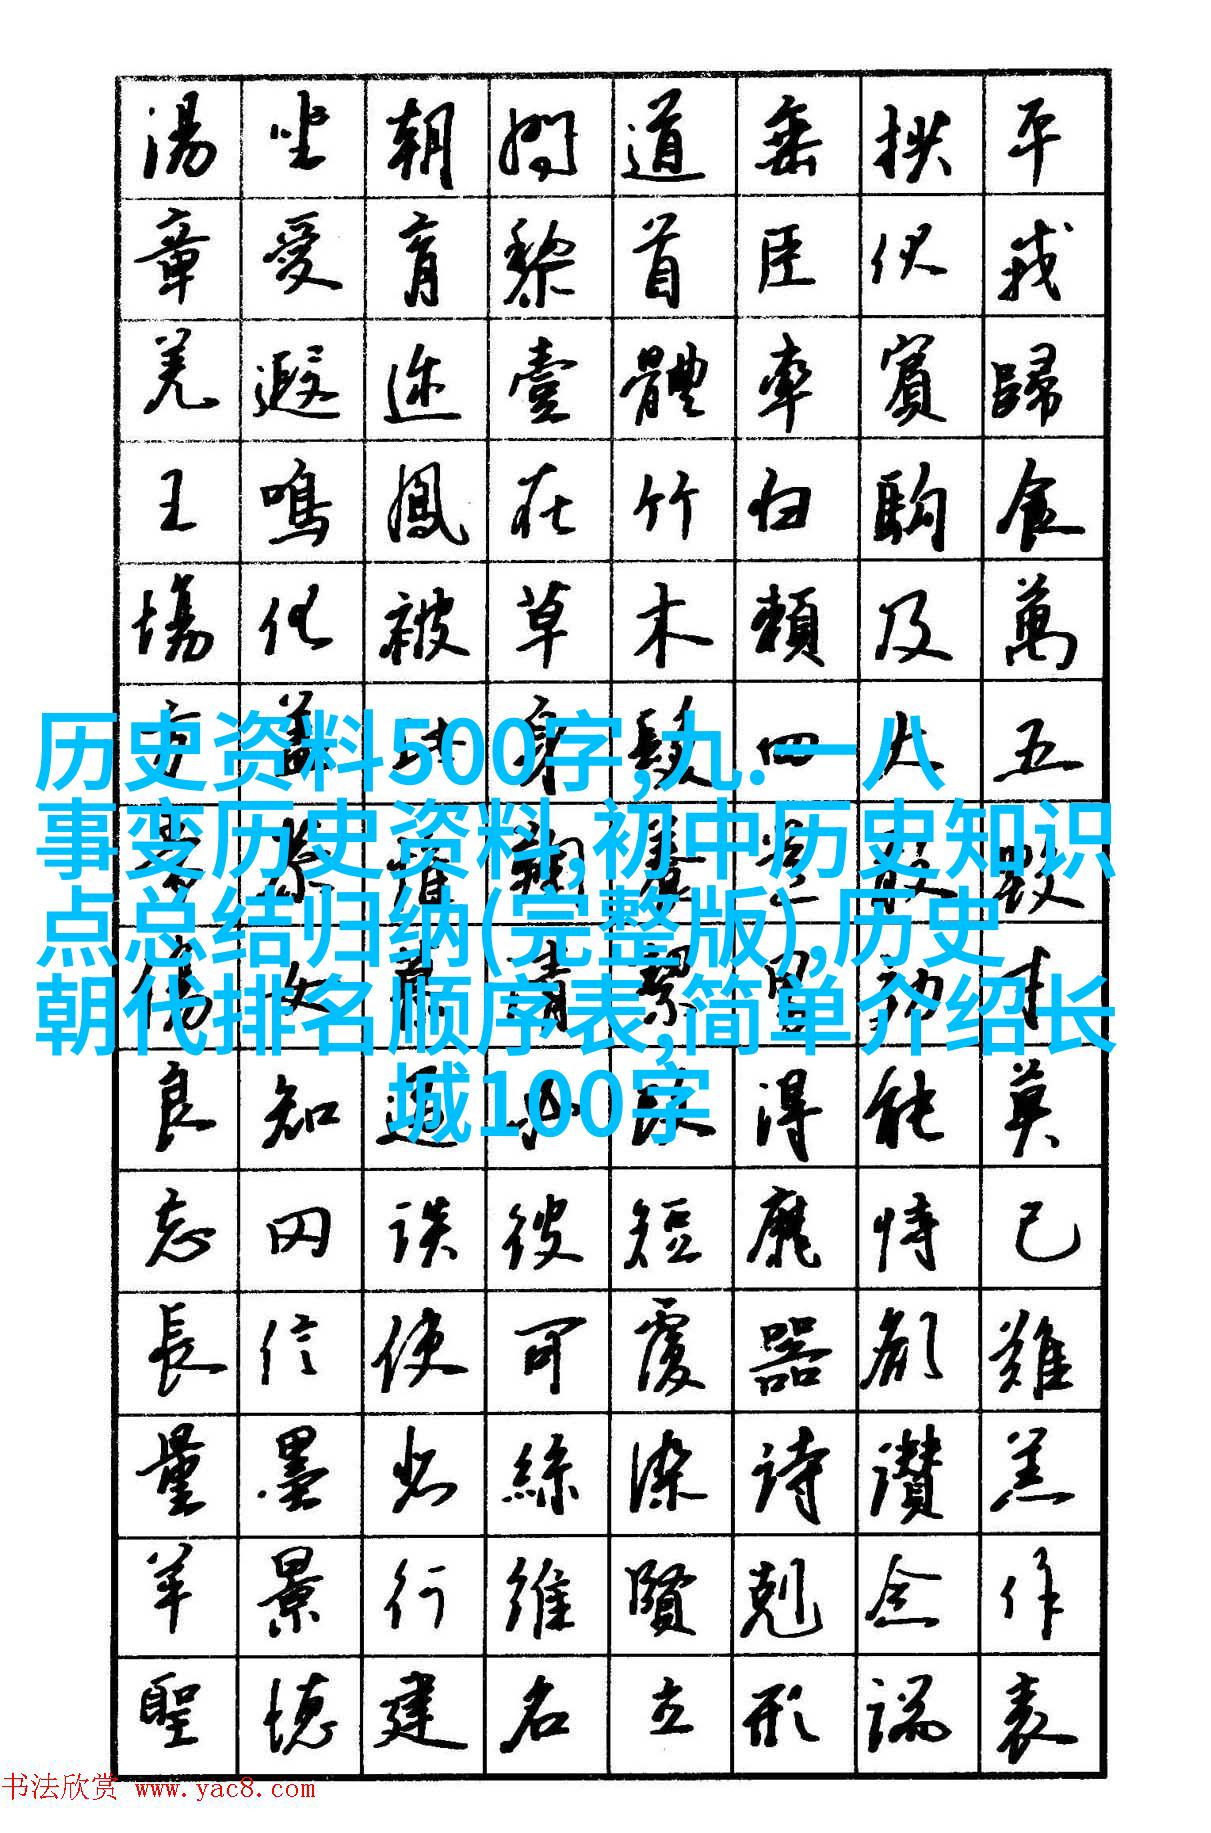 湯坐朝問道垂拱平
章愛育黎首臣伏戎
羌遐迩壹體率賓歸
王鳴鳳在竹白駒食
場化被草木賴及萬
方盖此身髮四大五
历史资料500字,九.一八
事变历史资料,初中历史知识
点总结归纳(完整版),历史
朝代排名顺序表,简单介绍长
城100字
良知過必改得能莫
忘罔談彼短靡恃己
長信使可覆器欲難
量墨悲絲染詩讚羔
羊景行維賢剋念作
聖德建名立形端表
书法欣赏 www.yac8.com